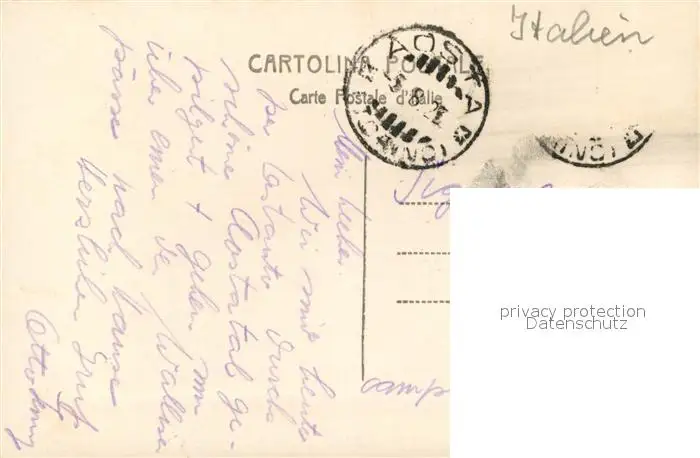 Italien
CARTOLINA POSTALE
Carte Postale d'Italie
AOSTA
Mein lieber.
Wir sind heute
per
durchs
schöne Aostatal ge-
pilgert + gehen nun
über einen der Walliser
pässe nach Hause
Herzlichen Gruß
Sig
camp
privacy protection
Datenschutz